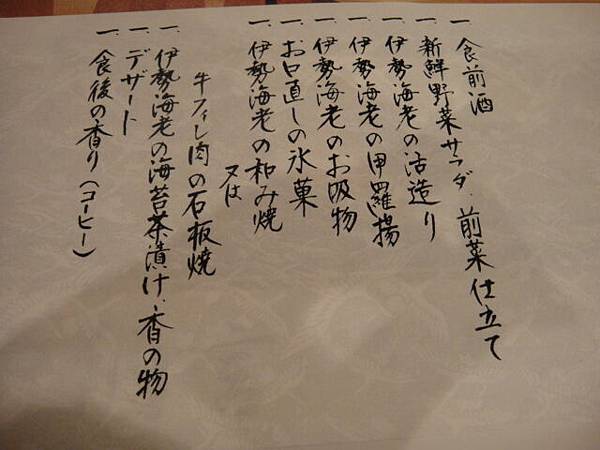 一 食前酒
一 新鮮野菜サラダ、前菜仕立て
一 伊勢海老の活造り
一 伊勢海老の甲羅揚
一 伊勢海老のお吸物
一 お口直しの氷菓
一 伊勢海老の和み焼
又は
牛フィレ肉の石板焼
一 伊勢海老の海苔茶漬け、香の物
一 デザート
一 食後の香り(コーヒー)